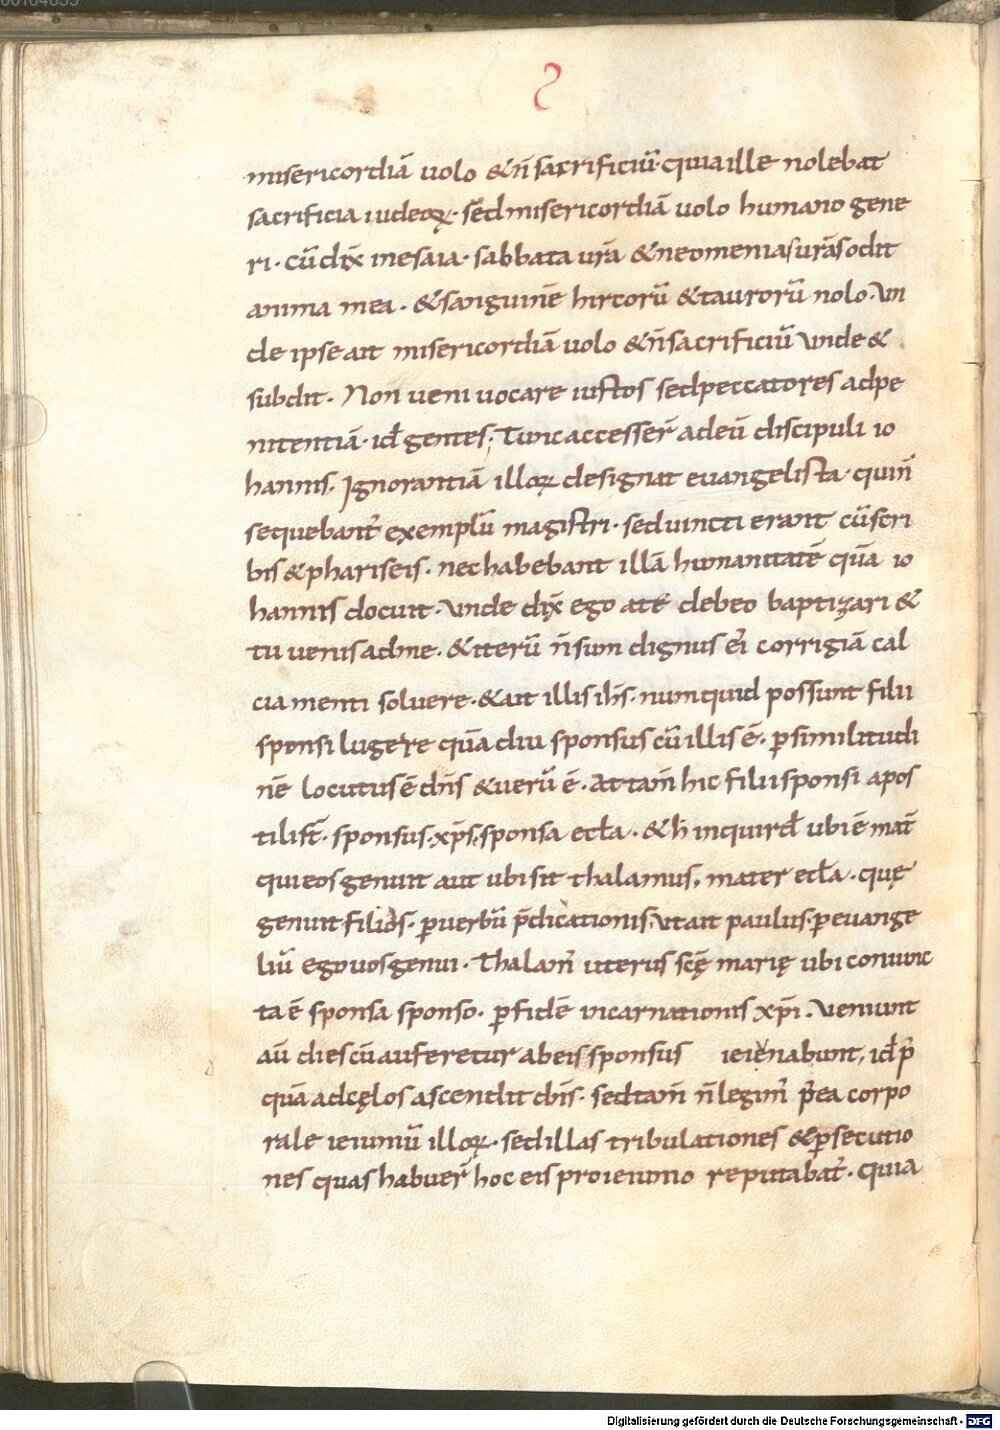 misericordiã uolo &n̄ sacrificiū· quia ille nolebat
sacrificia iudeoꝝ· sed misericordiã uolo humano gene
ri· cū dix̄ in esaia· sabbata urã & neomenias urãs odit
anima mea· & sanguinē hircorū & taurorū nolo· Vn
de ipse ait misericordiã uolo &n̄ sacrificiū Vnde &
subdit· Non ueni uocare iustos sed peccatores ad pe
nitentiã· id̄ gentes; Tunc accesser̄ ad eū discipuli io
hannis. Ignorantiã illoꝝ designat euangelista· qui n̄
sequebant̄ exemplū magistri· sed uincti erant cū scri
bis & phariseis· nec habebant illã humanitatē quã io
hannis docuit· Vnde dix̄ ego a te debeo baptizari &
tu uenis ad me· & iterū n̄ sum dignus ei̓ corrigiã cal
ciamenti soluere· & ait illis ih̄s· numquid possunt filii
sponsi lugere quã diu sponsus cū illis ē· ꝑ similitudi
nē locutus ē dn̄s & uerū ē· Attam̄ hic filii sponsi apos
tili st̄· sponsus· xp̄s· sponsa eccl̄a· & h̄ inquird̄ ubi ē mat̄
qui eos genuit aut ubi sit thalamus, mater eccl̄a· quę
genuit filios· ꝑ uerbū p̄dicationis, Vt ait paulus· ꝑ euange
liū ego uos genui· Thalam̓ uterus scę̄ marię ubi coniunc
ta ē sponsa sponso· ꝑ fidē incarnationis xp̄i· Veniunt
aū dies cū auferetur ab eis sponsus ieiunabunt, id̄ p̓
quã ad cęlos ascendit dn̄s· sed tam̄ n̄ legim̓ p̓ ea corpo
rale ieiuniū illoꝝ· sed illas tribulationes & ꝑsecutio
nes quas habuer̄ hoc eis pro ieiunio reputabat̄· quia
Digitalisierung gefördert durch die Deutsche Forschungsgemeinschaft - DFG